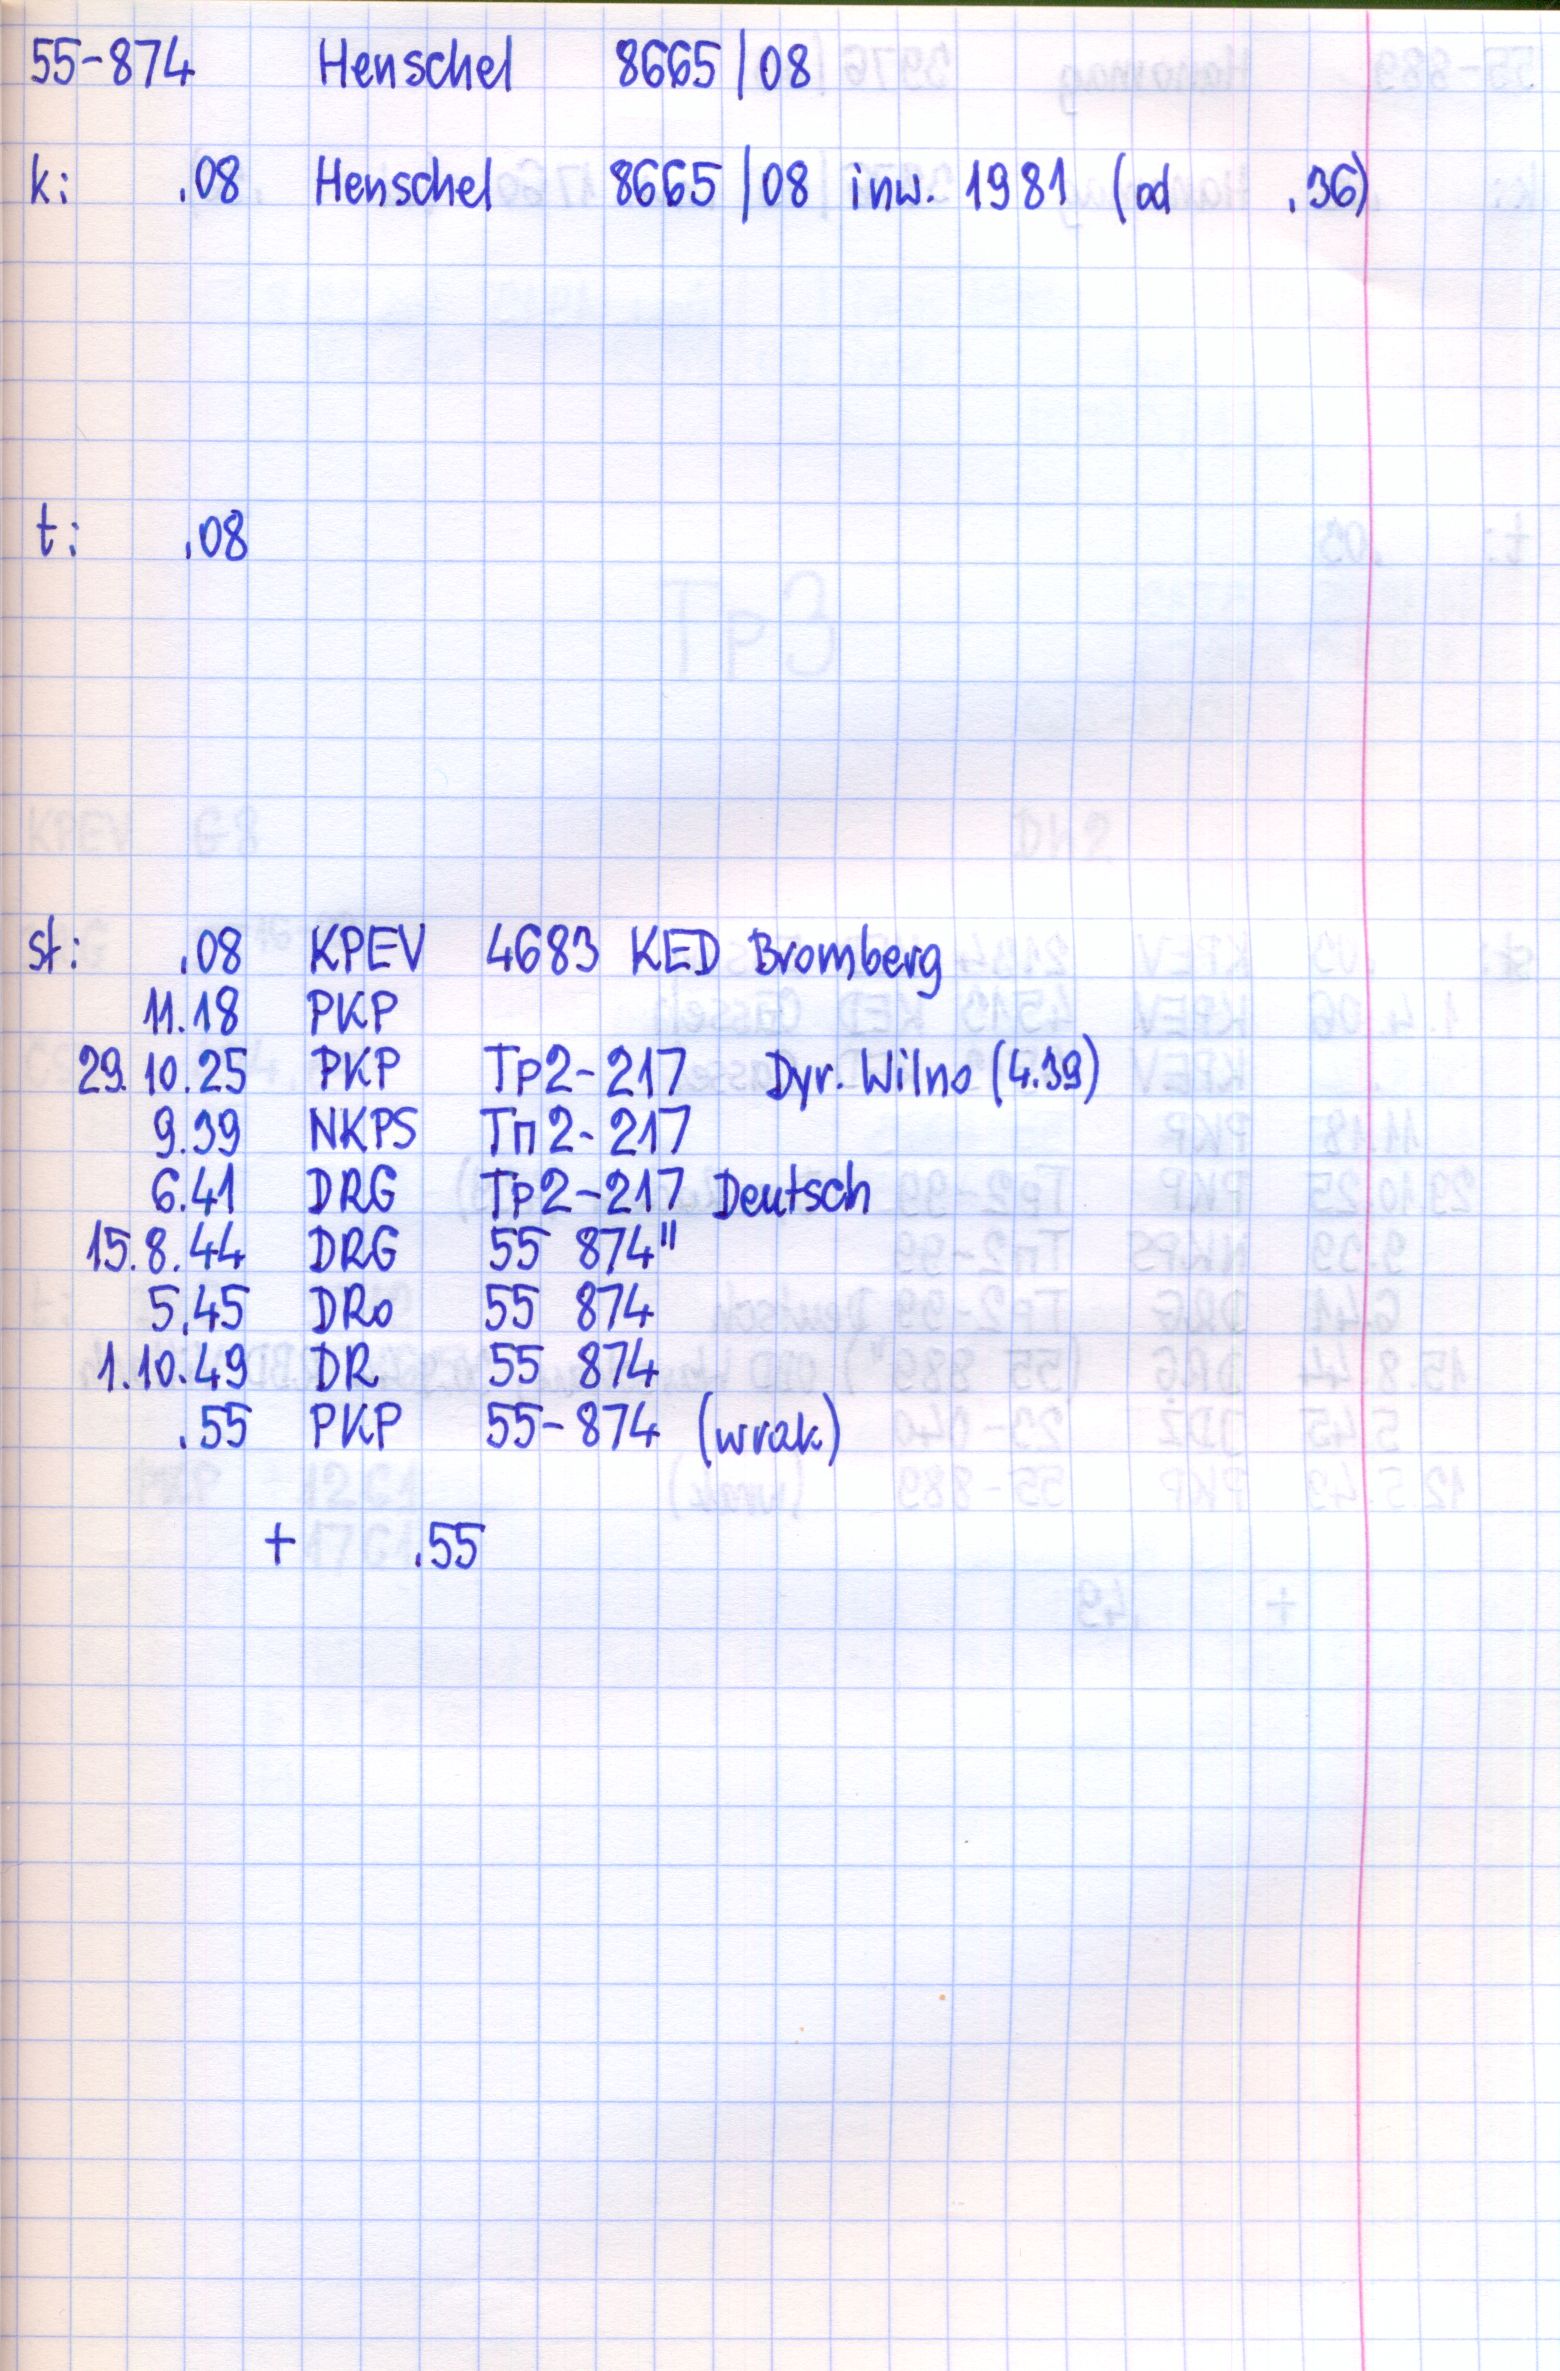 55-874 Henschel 8665/08
k: .08 Henschel 8665/08 inw. 1981 (od .36)
t: .08
st: .08 KPEV 4683 KED Bromberg
11.18 PKP
29.10.25 PKP Tp2-217 Dyr. Wilno (4.39)
9.39 NKPS Тп2-217
6.41 DRG Tp2-217 Deutsch
15.8.44 DRG 55 874"
5.45 DRo 55 874
1.10.49 DR 55 874
.55 PKP 55-874 (wrak)
+ .55